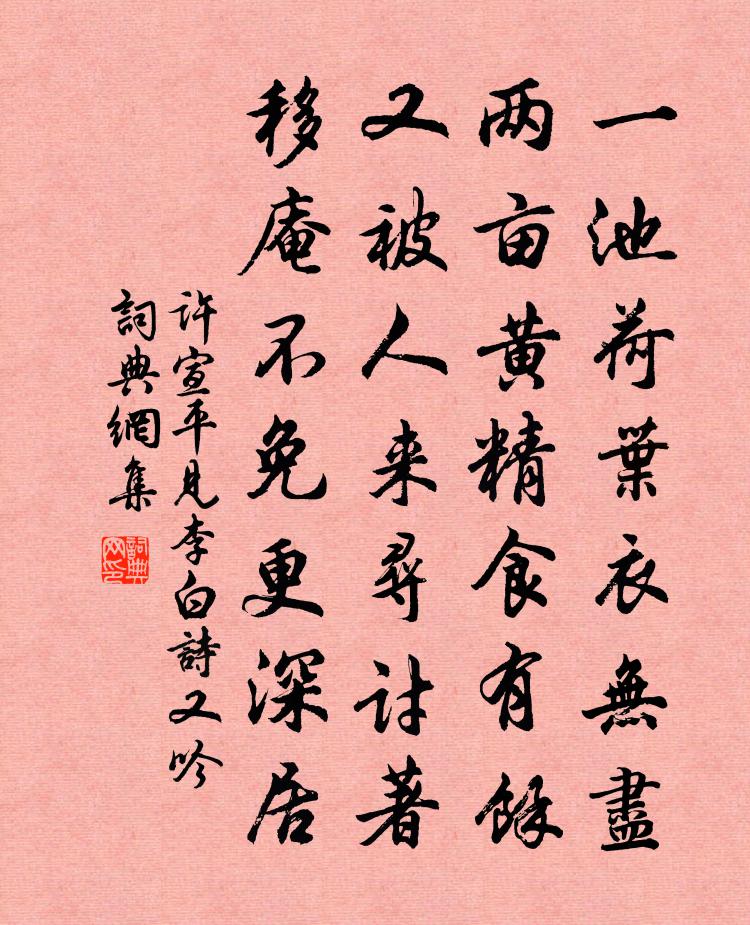 一池荷葉衣無盡
两亩黄精食有餘
又被人来尋討著
移庵不免更深居
许宣平見李白詩又吟
詞典網集
詞典網印